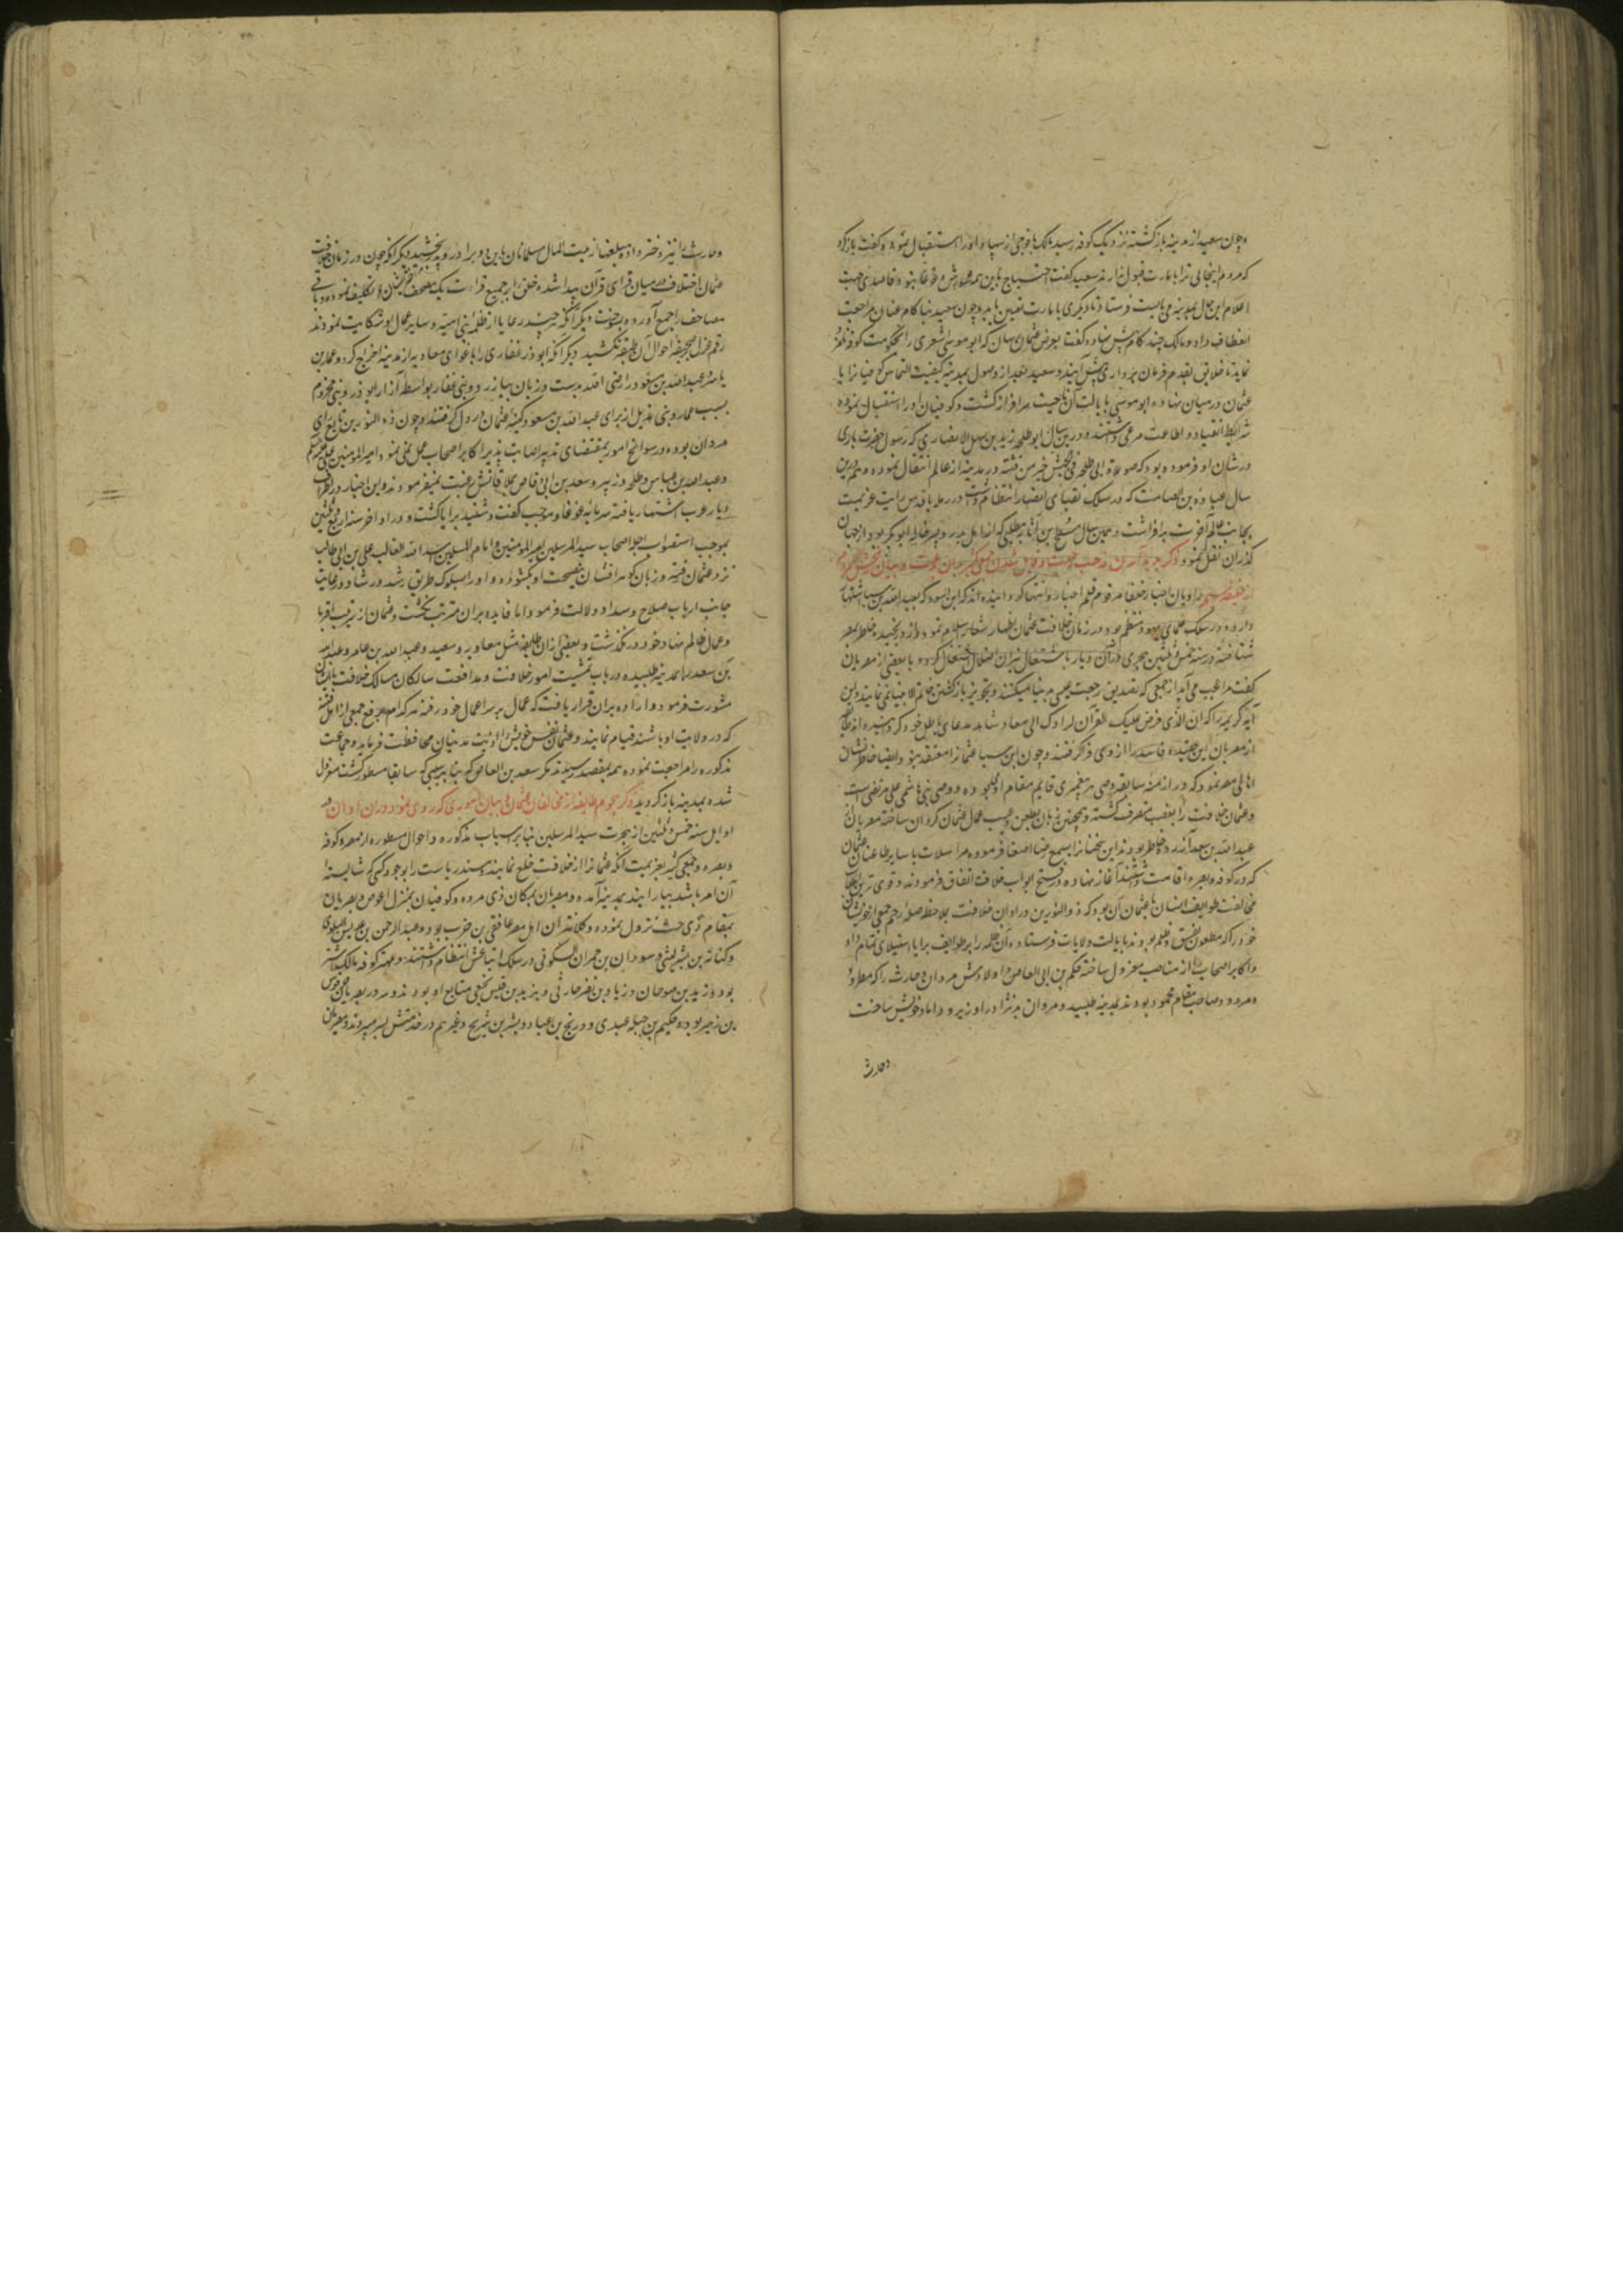 و چون سعید از مدینه بازگشته نزدیک کوفه رسید مالک با فوجی از سپاه او را استقبال نموده گفت بازگرد
که مردم اینجائی ترا بامارت قبول ندارند سعید گفت احتیاج باین همه شورش و غوغا نبود قاصدی جهت
اعلام این حال بمدینه می بایست فرستاد تا دیگری بامارت تعیین یابد و چون سعید بناکام عنان مراجعت
انعطاف داد و مالک چند کام پیش نهاد و گفت بعرض عثمان رسان که ابو موسی اشعری را بحکومت کوفه نامزد
نماید تا خلائق بقدم فرمان برداری پیش آیند و سعید بعد از وصول بمدینه کیفیت التماس کوفیانرا با
عثمان در میان نهاده ابو موسی بایالت آن ناحیت سرافراز گشت و کوفیان او را استقبال نموده
شرایط انقیاد و اطاعت مرعی داشتند و درین سال ابو طلحه زید بن سهل الانصاری که رسول حضرت باری
در شان او فرموده بود که صوت ابی طلحه فی الجیش خیر من فئته در مدینه از عالم انتقال نمود و هم درین
سال عباده بن الصامت که در سلک نقبای انصار انتظام داشت در رمله یا قدس رایت عزیمت
بجانب عالم آخرت برافراشت و همین سال مسطح بن اثاثه مطلبی که از اهل بدر و پسر خاله ابو بکر بود از جهان
گذران نقل نمود ذکر پدید آمدن مذهب رجعت و قایل شدن جمعی از مصریان و بیان رنجش مردم
از خلیفه سیم راویان اخبار خلفا مرقوم قلم اخبار و انتها گردانیده اند که ابن السودا که بعبد الله بن سبا اشتهار
دارد و در سلک علمای یهود منتظم بود در زمان خلافت عثمان اظهار شعار اسلام نمود و از او رنجیده خاطر بمصر
شتافته در سنه خمس و ثلثین هجری در آن دیار باشتعال نیران اضلال اشتغال کرد و با بعضی از مصریان
گفت مرا عجب می آید از جمعی که تصدیق رجعت عیسی بدنیا میکنند و تجویز بازگشتن خاتم الانبیا نمی نمایند و این
آیه کریمه را که ان الذی فرض علیک القرآن لرادک الی معاد شاهد مدعای باطل خود گردانیده طایفه
از مصریان این عقیده فاسد را از وی فرا گرفتند و چون ابن سبا عثمانرا معتقد نبود ایضا خاطر نشان
اهالی مصر نمود که در ازمنه سابقه وصی هر پیغمبری قایم مقام او میبوده و وصی نبی هاشمی علی مرتضی است
و عثمان خلافت را بغصب متصرف گشته و همچنین زبان بطعن و عیب عمال عثمان گردان ساخته مصریان از
عبد الله بن سعد آزرده خاطر بودند این سخنانرا بسمع رضا اصغا فرموده مراسلات با سایر طاعنان عثمان
که در کوفه و بصره اقامت داشتند آغاز نهاده در فتح ابواب خلافت اتفاق فرمودند و قوی ترین اسباب
مخالفت طوایف انسان با عثمان آن بود که ذو النورین در اوان خلافت بملاحظه صله رحم جمعی از خویشان
خود را که مطعون بفسق و ظلم بودند بایالت ولایات فرستاده آن ظلمه را بر طوایف برایا استیلای تمام داد
و اکابر اصحاب را از مناصب معزول ساخته حکم بن ابی العاص و اولادش مروان و حارث را که مطرود
و مردود صاحب مقام محمود بودند بمدینه طلبید و مروان بد نژاد را وزیر و داماد خویش ساخت
و حارث
و حارث را نیز دختر داده مبلغها از بیت المال مسلمانان باین دو برادر و پدر بخشید دیگر آنکه چون در زمان خلافت
عثمان اختلاف در میان قرای قرآن پیدا شده خلق را بر جمیع قراءت یک مصحف تکلیف نموده و باقی
مصاحف را جمع آورده بسوخت دیگر آنکه هر چند رعایا از ظلم بنی امیه و سایر عمال او شکایت نمودند
رقم عزل بر صحیفه احوال آن طبقه نکشید دیگر آنکه ابوذر غفاری را باغوای معاویه از مدینه اخراج کرد و عمار بن
یاسر و عبد الله بن مسعود را رضی الله عنه بدست و زبان بیازرد و بنی غفار بواسطه آزار ابوذر و بنی مخزوم
بسبب عمار و بنی هذیل از برای عبد الله بن مسعود کینه عثمان در دل گرفتند و چون ذو النورین تابع رای
مروان بوده در سوانح امور بمقتضای تدبیر اصابت پذیر اکابر اصحاب عمل نمی نمود امیر المؤمنین علی
و عبد الله بن عباس و طلحه و زبیر و سعد بن ابی وقاص بملاقاتش رغبت نمیفرمودند و این اخبار در اطراف
دیار عرب اشتهار یافته سرمایه غوغا و موجب گفت و شنید برایا گشت و در اواخر سنه اربع و ثلثین
بموجب استصواب اجله اصحاب سید المرسلین امیر المؤمنین و امام المسلمین اسد الله الغالب علی بن ابی طالب
نزد عثمان رفته و زبان گوهر افشان بنصیحت او بگشوده و او را بسلوک طریق رشد و رشاد و رعایت
جانب ارباب صلاح و سداد دلالت فرمود اما فایده بر آن مترتب نگشت و عثمان از تربیت اقربا
و عمال ظالم نهاد خود در نگذشت و بعضی از آن طایفه مثل معاویه و سعید و عبد الله بن عامر و عبد الله
بن سعد را بمدینه طلبیده در باب تمشیت امور خلافت و مدافعت سالکان مسالک خلافت با ایشان
مشورت فرمود و اراده بر آن قرار یافت که عمال بر سر اعمال خود رفته هر کدام برفع جمعی از اهل فتنه
که در ولایت او باشند قیام نمایند و عثمان نفس خویش را از اذیت مدنیان محافظت فرماید و جماعت
مذکوره را مراجعت نموده همه بمقصد رسیدند مگر سعید بن العاص که بنابر سببی که سابقا مسطور گشت معزول
شده بمدینه باز گردید ذکر هجوم طایفه از مخالفان عثمان و بیان اموری که روی نمود در آن اوان در
اوایل سنه خمس و ثلثین از هجرت سید المرسلین بنابر اسباب مذکوره و احوال مسطوره از مصر و کوفه
و بصره جمعی کثیر بعزیمت آنکه عثمانرا از خلافت خلع نمایند و مسند ریاست را بوجود کسی که شایسته
آن امر باشد بیارایند بمدینه آمده و مصریان بمکان ذی مروه و کوفیان بمنزل اعوص و بصریان
بمقام ذی خشب نزول نموده و کلانتران اهل مصر غافقی بن حرب بود و عبد الرحمن بن عدیس البلوی
و کنانه بن بشر لیثی و سودان بن حمران سکونی در سلک اتباعش انتظام داشتند و مهتر کوفه مالک اشتر
بود و زید بن صوحان و زیاد بن نضر حارثی و یزید بن قیس نخعی متابع او بودند و سردار بصریان حرقوص
بن زهیر بود و حکیم بن جبله عبدی و ذریح بن عباد و بشر بن شریح و غیر هم در خدمتش بسر میبردند و مصریان